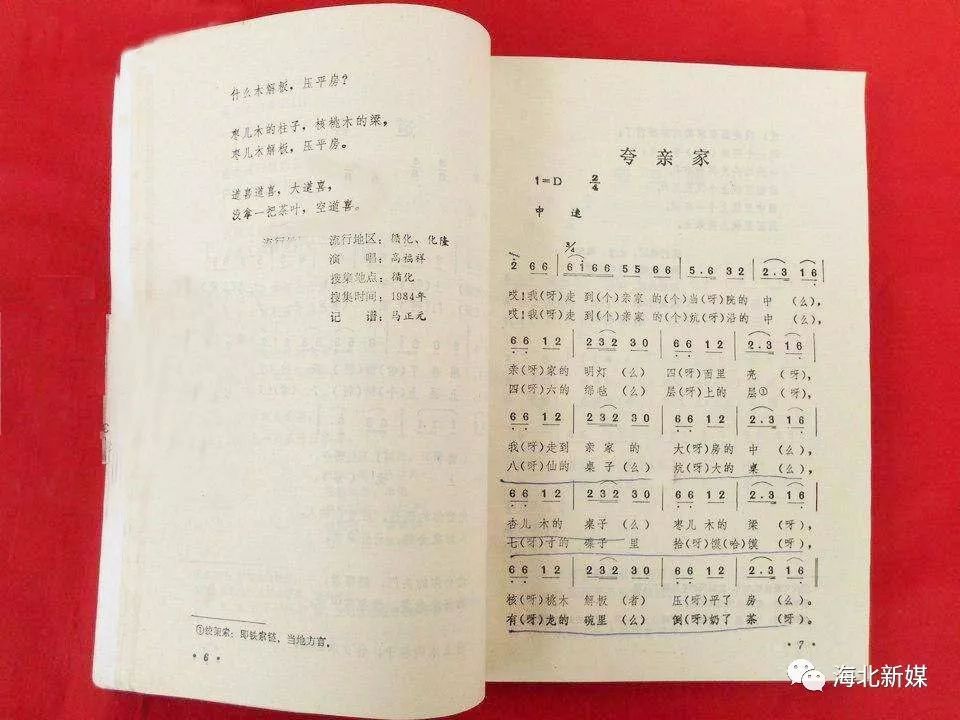 什么木解板，压平房？
枣儿木的柱子，核桃木的梁，
枣儿木解板，压平房。
道喜道喜，大道喜，
没拿一把茶叶，空道喜。
流行地区：循化、化隆
演 唱：高福祥
搜集地点：循化
搜集时间：1984年
记 谱：马正元
①绞架索：即铁索链，当地方言。
·6·
夸亲家
1=D 2/4
中速
3/4
2 66 | 61 66 55 66 | 5.6 32 | 2.3 16 |
哎！我(呀)走 到(个)亲家 的(个)当(呀)院的 中 (么)，
哎！我(呀)走 到(个)亲家 的(个)炕(呀)沿的 中 (么)，
66 12 | 232 30 | 66 12 | 2.3 16 |
亲(呀)家的 明灯 (么) 四(呀)面里 亮 (呀)，
四(呀)六的 绵毡 (么) 层(呀)上的 层① (呀)，
66 12 | 232 30 | 66 12 | 2.3 16 |
我(呀)走到 亲家 的 大(呀)房的 中 (么)，
八(呀)仙的 桌子 (么) 炕(呀)大的 桌 (么)，
66 12 | 232 30 | 66 12 | 2.3 16 |
杏儿 木的 桌子 (么) 枣儿 木的 梁 (呀)，
七(呀)寸的 碟子 里 拾(呀)馍(哈)馍 (呀)，
66 12 | 232 30 | 66 12 | 2.3 16 |
核(呀)桃木 解板 (者) 压(呀)平了 房 (么)。
有(呀)龙的 碗里 (么) 倒(呀)奶了 茶 (呀)。
·7·
海北新媒